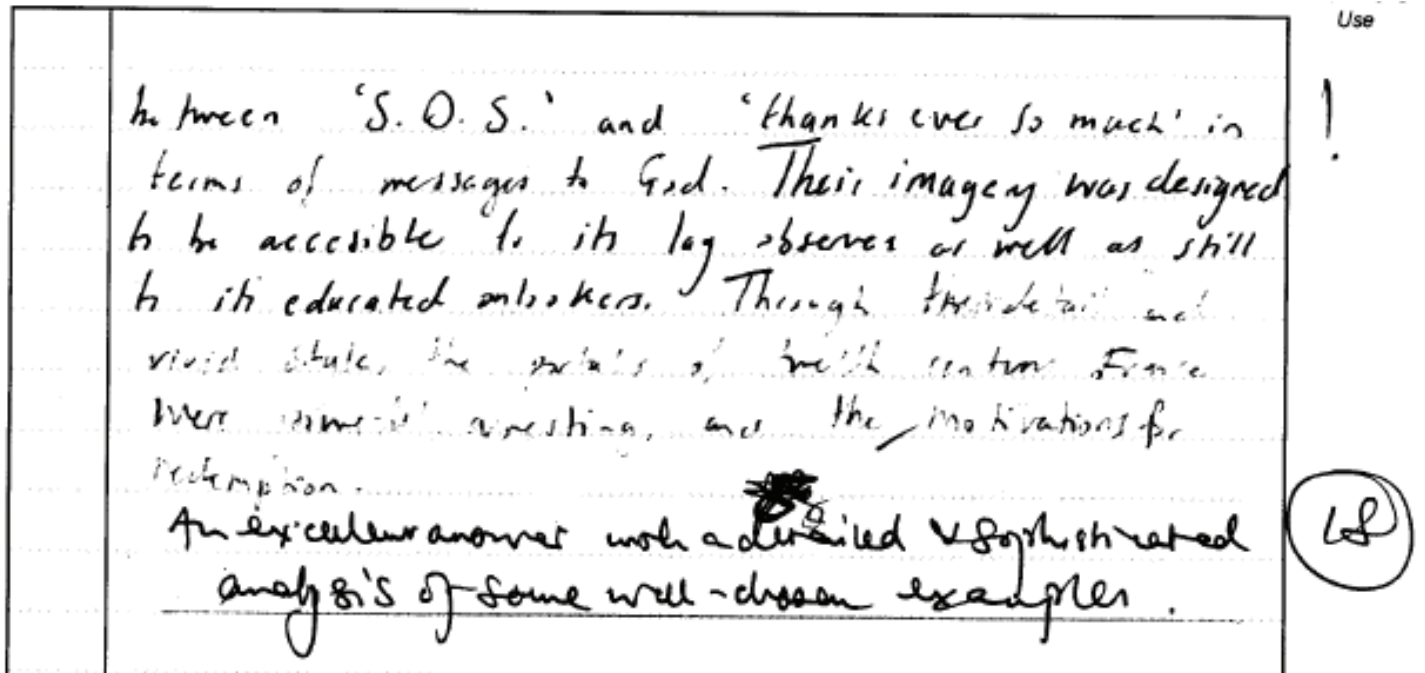 Use
between 'S.O.S.' and 'thanks ever so much' in
!
terms of messages to God. Their imagery was designed
to be accesible to its lay observer as well as still
to its educated onlookers. Through their detail and
vivid style, the portals of twelfth century France
were arresting, and the motivations for
redemption.
An excellent answer with a detailed & sophisticated
analysis of some well-chosen examples.